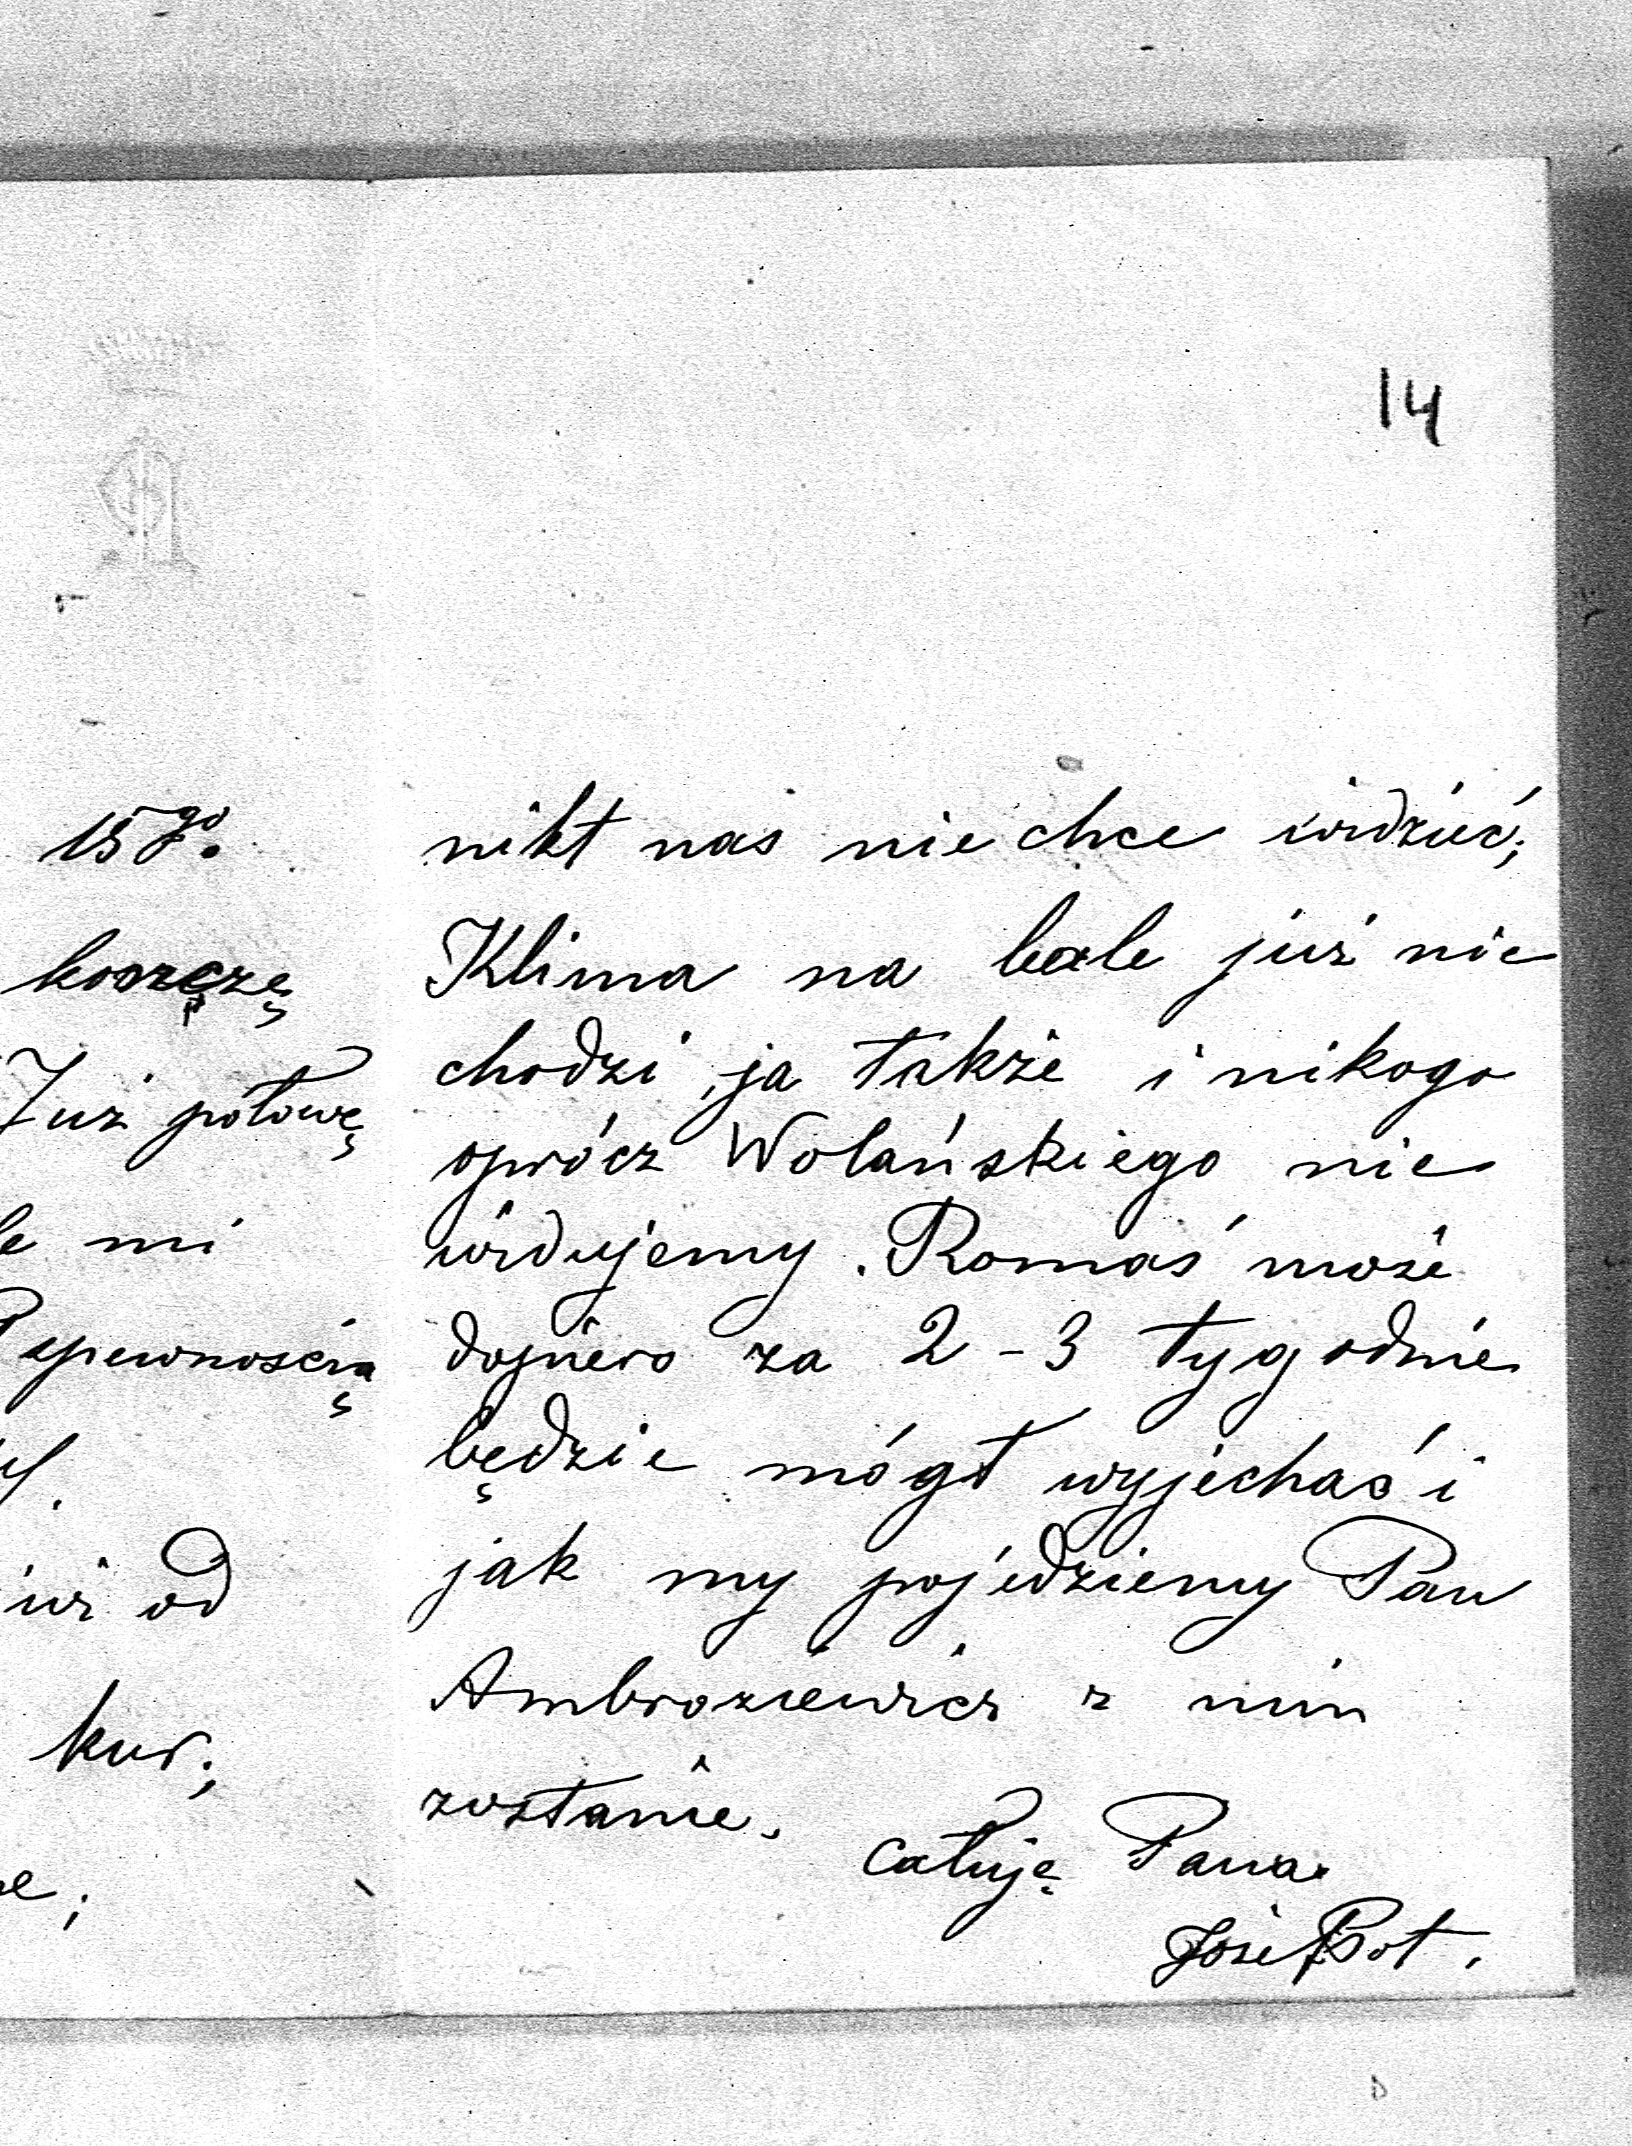 14
15go.
koszczę
Już połowę
mi
od
kur;
nikt nas nie chce widzieć;
Klima na bale już nie
chodzi, ja także i nikogo
oprócz Wolańskiego nie
widujemy. Romaś może
dopiero za 2-3 tygodnie
będzie mógł wyjechać i
jak my pojedziemy Pan
Ambroziewicz z nim
zostanie.
Całuję Pana